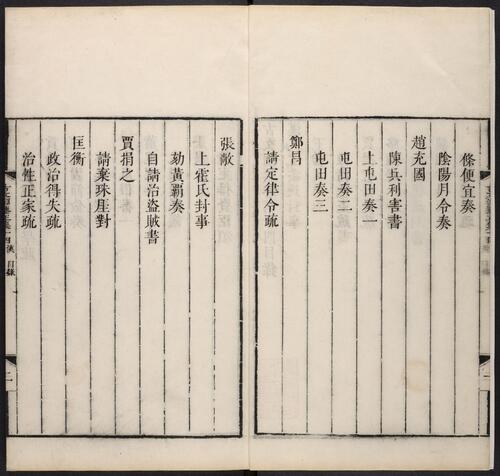 條便宜奏
陰陽月令奏
趙充國
陳兵利害書
上屯田奏一
屯田奏二
屯田奏三
鄭昌
請定律令疏
張敞
上霍氏封事
劾黃霸奏
自請治盜賊書
賈捐之
請棄珠厓對
匡衡
政治得失疏
治性正家疏
目錄
二